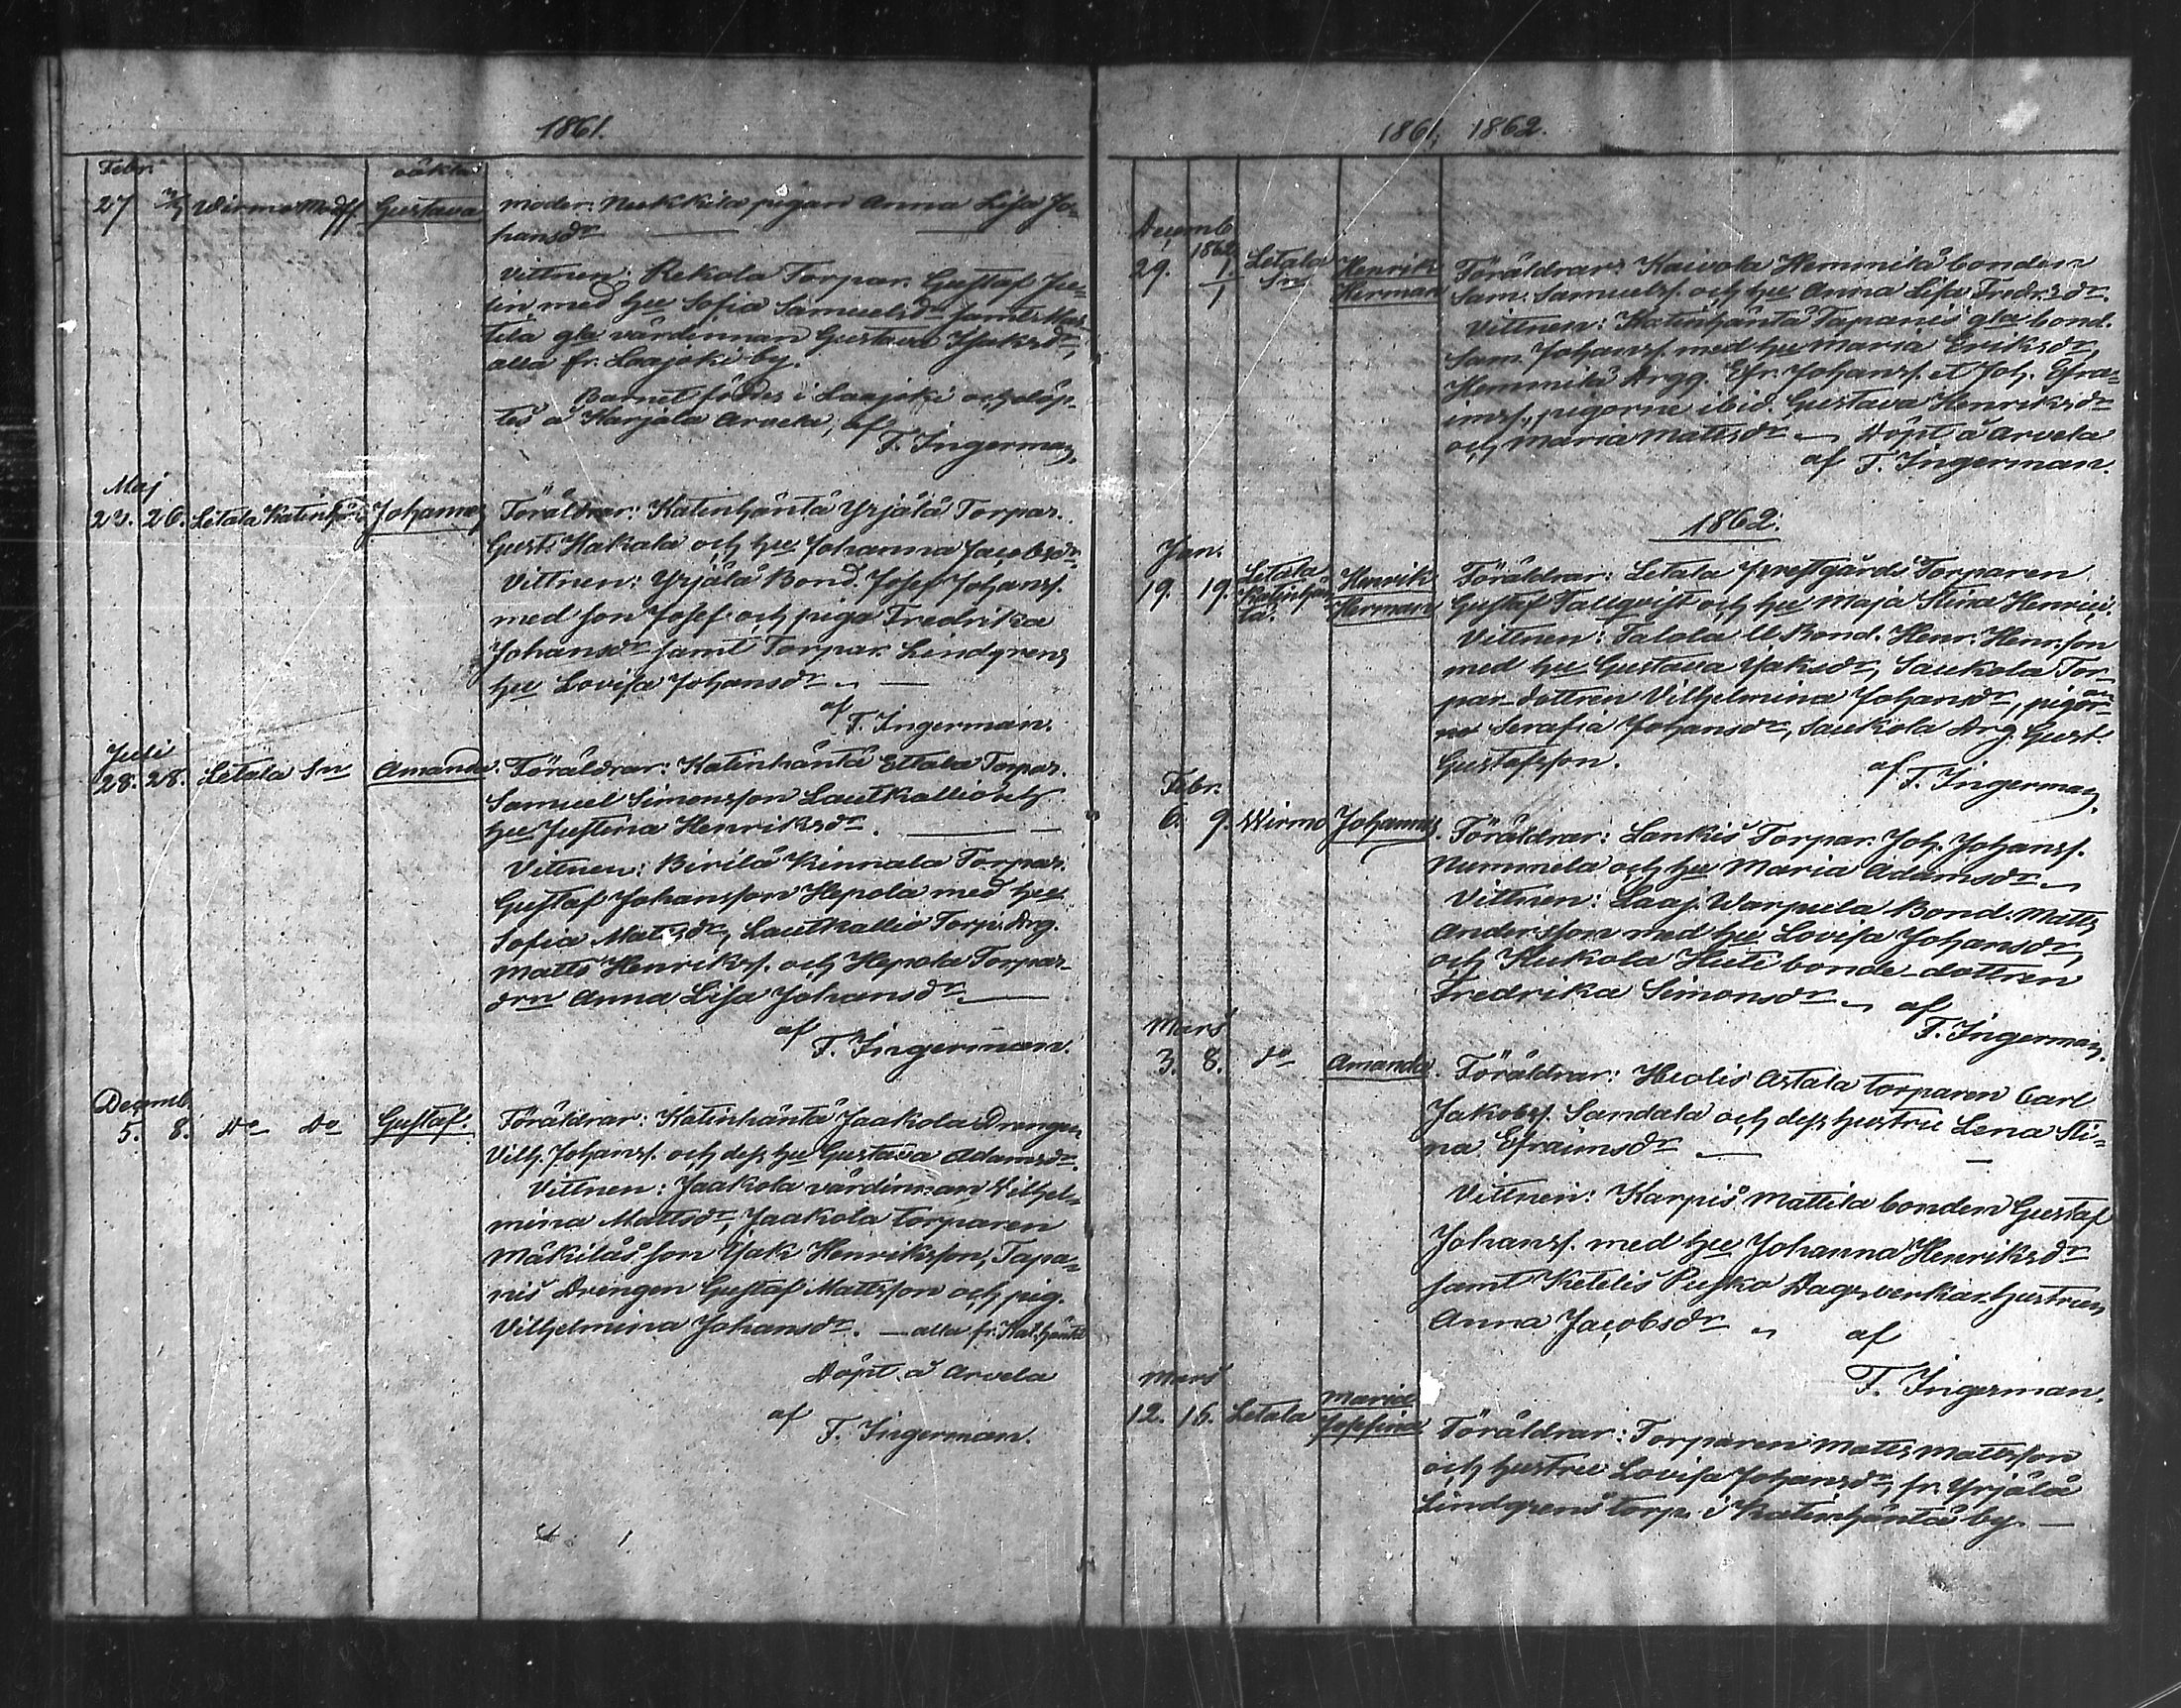 1861.
Febr.
oäkta
27 Wirmo Gustava moder: Nukkila pigan Anna Lisa Jo-
hansdr
Vittnen: Rekola Torpar. Gustaf Jus-
lin med hu Sofia Samuelsdr samt Mar-
tila gla värdinnan Gustava Isaksdr,
alla fr. Laajoki by.
Barnet föddes i Laajoki och döp-
tes å Karjala Arvela, af
F. Ingerman.
Maj
23. 26. Letala Katinhänt. Johannes Föräldrar: Katinhäntä Yrjälä Torpar.
Gust. Hakala och hu Johanna Jacobsdr.
Vittnen: Yrjälä Bond. Josef Johanss.
med son Josef och piga Fredrika
Johansdr samt Torpar. Lindgrens
hu Lovisa Johansdr. —
af
F. Ingerman.
Juli
28. 28. Letala Sn Amanda. Föräldrar: Katinhäntä Ettala Torpar.
Samuel Simonsson Lautkallio och
hu Justina Henriksdr. —
Vittnen: Birilä Kinnala Torpar.
Gustaf Johansson Hepola med hu
Sofia Matsdr, Lautkallio Torp. Drg.
Matts Henrikss. och Hepola Torpar-
drn Anna Lisa Johansdr. —
af
F. Ingerman.
Decemb.
5. 8. Do Do Gustaf. Föräldrar: Katinhäntä Jaakola Drengen
Vilh. Johanss. och dess hu Gustava Adamsdr.
Vittnen: Jaakola värdinnan Wilhel-
mina Mattsdr, Jaakola torparen
Mäkiläs son Isak Henriksson, Tapa-
nis Drengen Gustaf Mattsson och pig.
Vilhelmina Johansdr. — alla fr. Kat.häntä
Döpt å Arvela
af
F. Ingerman.
1861, 1862.
Decemb.
1862
29. 1/1 Letala Sn Henrik Herman Föräldrar: Kaivola Hemmilä bonden
Sam. Samuels. och hu Anna Lisa Fredr.sdr.
Vittnen: Katinhäntä Tapanis gla bond.
Sam. Johanss. med hu Maria Eriksdr,
Hemmilä Drgg. Efr. Johanss. et Joh. Efra-
imss., pigorne ibid. Gustava Henriksdr
och Maria Mattsdr — Döpt å Arvela
af F. Ingerman.
1862.
Jan.
19. 19. Letala Katinhän-
tä. Henrik Herman Föräldrar: Letala Prestgårds Torparen
Gustaf Tallqvist och hu Maja Stina Henrici.
Vittnen: Talola Bond. Henr. Henr.son
med hu Gustava Isaksdr, Saukola Tor-
par-dottren Vilhelmina Johansdr, pigan
Serafia Johansdr, Saukola Drg. Gust.
Gustafsson.
af F. Ingerman.
Febr.
6. 9. Wirmo Johannes. Föräldrar: Lankis Torpar. Joh. Johanss.
Nummila och hu Maria Adamsdr. —
Vittnen: Laaj. Warpula Bond. Matts
Andersson med hu Lovisa Johansdr,
och Kukola Huti bonde-dottren
Fredrika Simonsdr. — af
F. Ingerman.
Mars
3. 8. do Amanda. Föräldrar: Heolis Astala torparen Carl
Jakobss. Sandala och dess hustru Lena Sti-
na Efraimsdr —
Vittnen: Karpis Mattila bonden Gustaf
Johanss. med hu Johanna Henriksdr
samt Ketelis Pusko Dagsverkar.hustrun
Anna Jacobsdr. — af
F. Ingerman.
Mars
12. 16. Letala Maria Josefina Föräldrar: Torparen Matts Mattsson
och hustru Lovisa Johansdr, fr. Yrjälä
Lindgrens torp. i Katinhäntä by. —